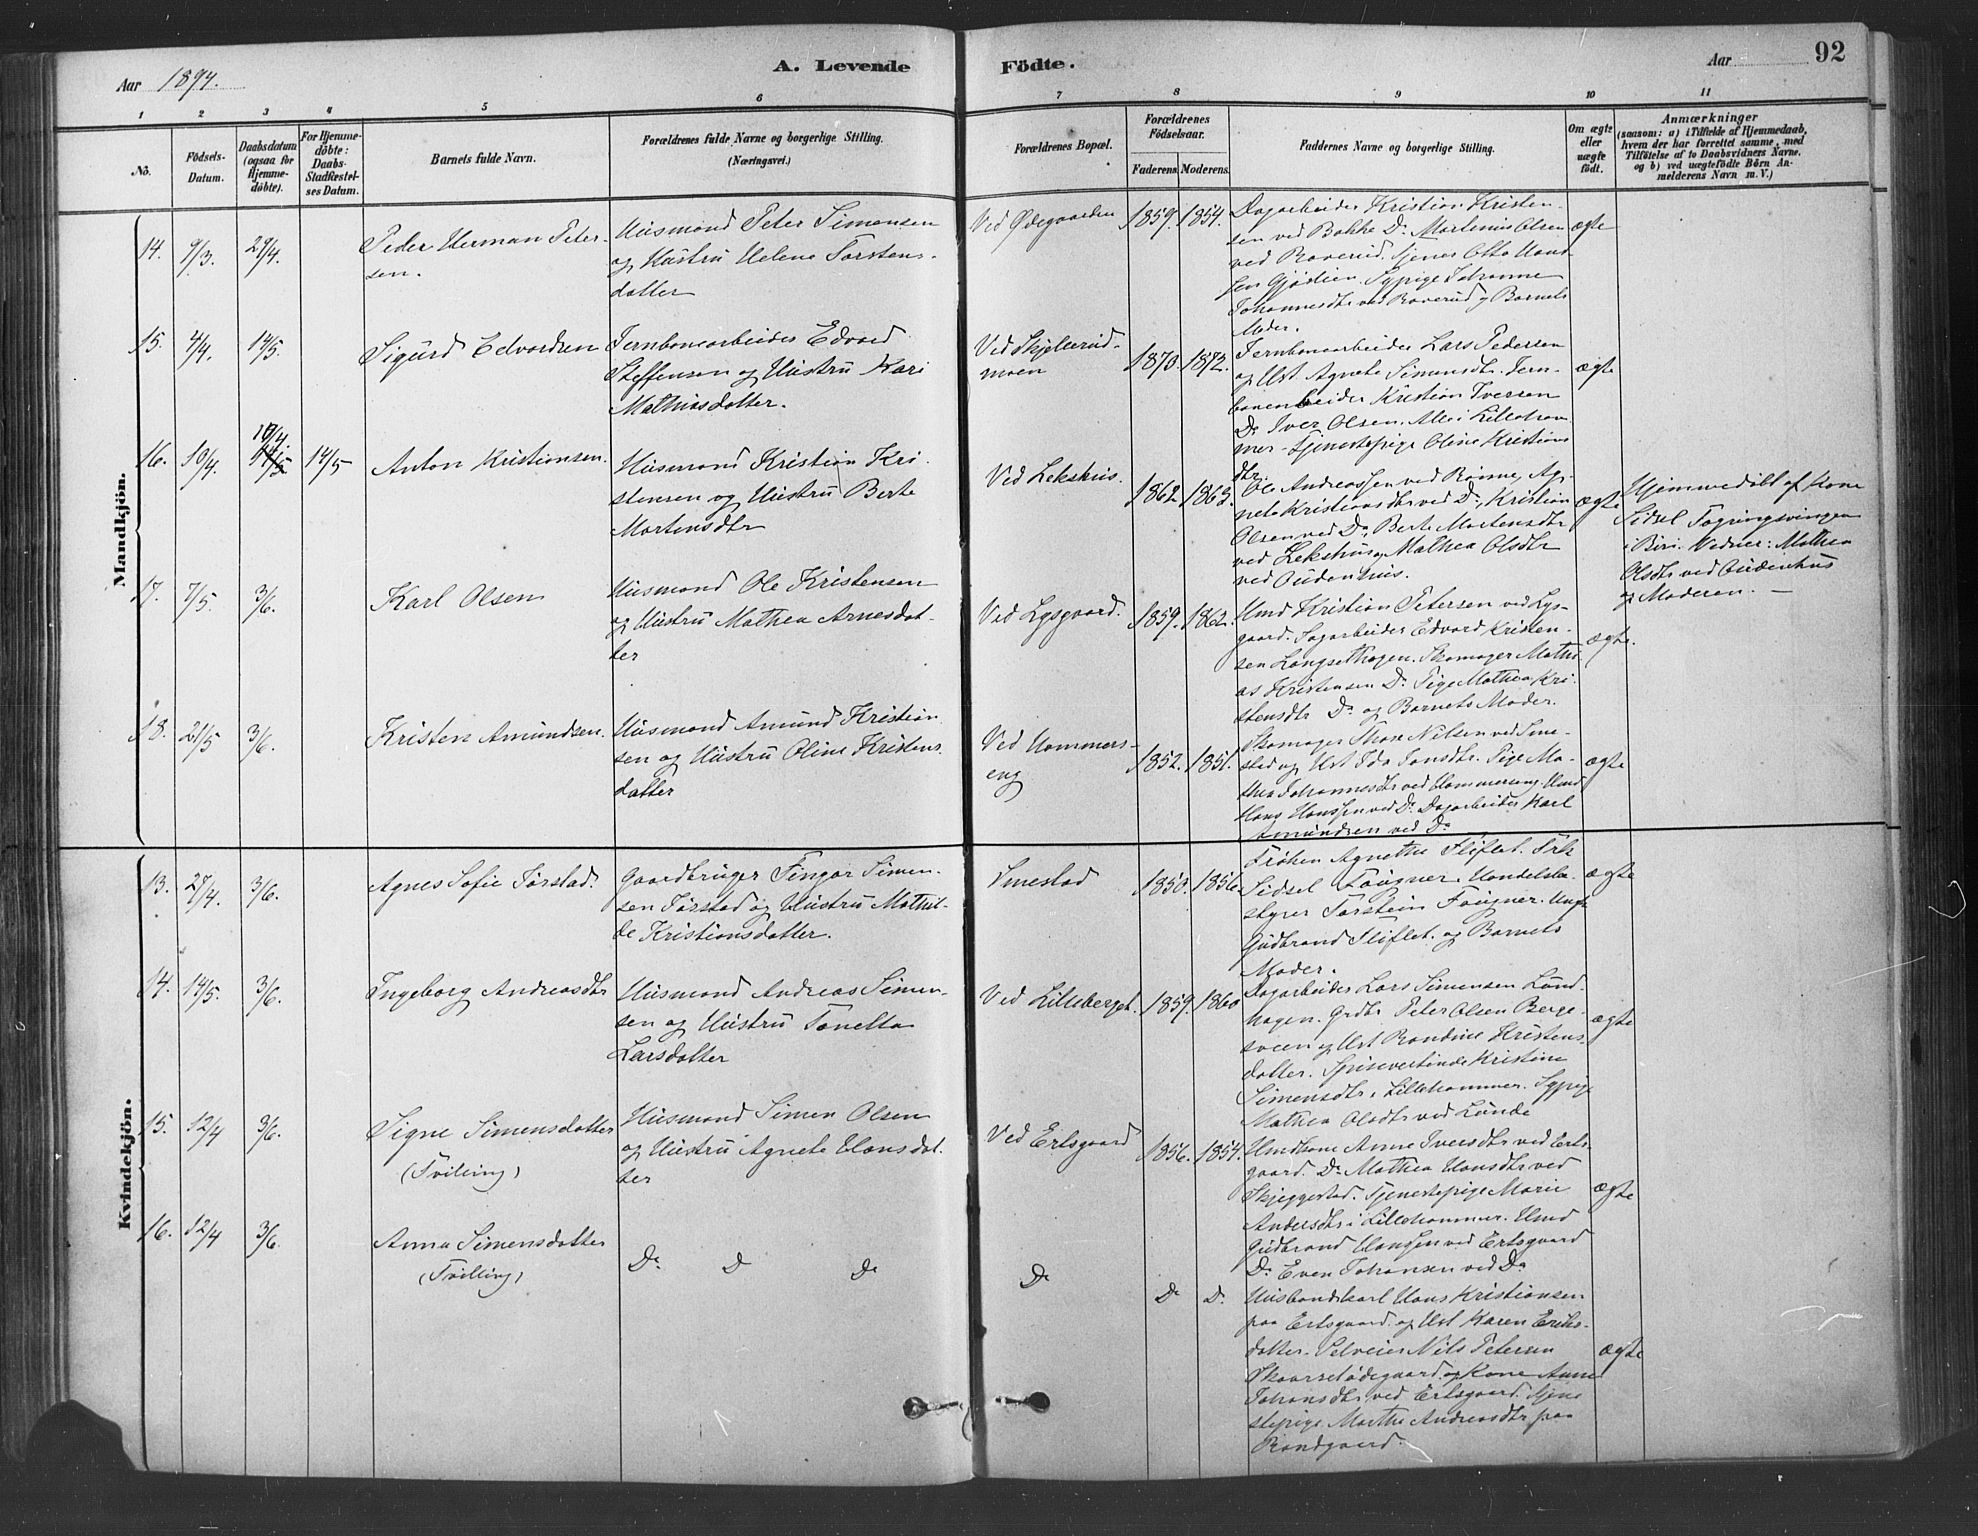 Aar 1894.
A. Levende Födte.
Aar
92
1 2 3 4 5 6 7 8 9 10 11
No.
Födsels-Datum.
Daabsdatum (ogsaa för Hjemmedöbte).
For Hjemmedöbte: Daabs-Stadfæstelses Datum.
Barnets fulde Navn.
Forældrenes fulde Navne og borgerlige Stilling. (Næringsvei.)
Forældrenes Bopæl.
Forældrenes Födselsaar.
Faderens. Moderens.
Faddernes Navne og borgerlige Stilling.
Om ægte eller uægte födt.
Anmærkninger
(saasom: a) i Tilfælde af Hjemmedaab, hvem der har forrettet samme, med Tilföielse af to Daabsvidners Navne. og b) ved uægtefödte Börn Anmelderens Navn m. V.)
Mandkjön.
14. 9/3. 29/4.
Peder Herman Peter-
sen.
Husmand Peter Simensen
og Hustru Helene Torstens-
datter
Ved Ødegaarden
1859. 1854.
Dagarbeider Kristian Kristen-
sen ved Bakke Do Martinius Olsen
ved Roverud. Tjener Otto Hans-
sen Gjödlien. Sypige Johanne
Johannesdtr ved Roverud og Barnets
Moder.
ægte
15. 4/4. 14/5.
Sigurd Edvardsen
Jernbanearbeider Edvard
Steffensen og Hustru Kari
Mathiasdatter.
Ved Skjellerud-
moen
1870. 1872.
Jernbanearbeider Lars Pedersen
og Ust. Agnete Simensdtr. Jern-
banearbeider Kristian Iversen
Do Iver Olsen. Alle i Lilleham
mer. Tjenestepige Oline Kristians
dtr.
ægte
16. 10/4. 10/4. 14/5 14/5
Anton Kristiansen.
Husmand Kristian Kri-
stensen og Hustru Berte
Mortensdtr
Ved Lekshus.
1862. 1863.
Ole Andreassen ved Rönne, Ag-
nete Kristiansdtr ved Do, Kristian
Olsen ved Do, Berte Mortensdtr
ved Lekshus og Mathea Olsdtr
ved Oudenhus.
ægte
Hjemmedöbt af Kone
Sidsel
i Biri. Vidner: Mathea
Olsdtr ved Oudenhus
og Moderen. —
17. 7/5. 3/6.
Karl Olsen
Husmand Ole Kristensen
og Hustru Mathea Arnesdat-
ter
Ved Lysgaard.
1859. 1862.
Hmd Kristian Petersen ved Lys-
gaard. Sagarbeider Edvard Kristen-
sen Langsethagen. Skomager Mathi
as Kristensen Do Pige Mathea Kri-
stensdtr Do og Barnets Moder.
ægte.
18. 21/5 3/6.
Kristen Amundsen.
Husmand Amund Kristian
sen og Hustru Oline Kristens
datter
Ved Hammers-
eng
1852. 1851.
Skomager Thore Nilsen ved Sme-
stad og Ust Ida Jonsdtr. Pige Ma-
thea Johannesdtr ved Hammerseng. Hmd
Hans Hanssen ved Do Dagarbeider Karl
Amundsen ved Do
ægte
Kvindekjön.
13. 27/4. 3/6.
Agnes Sofie Torstad.
Gaardbruger Fingar Simen-
sen Torstad og Hustru Mathil-
de Kristiansdatter.
Smestad
1850. 1856.
Fröken Agnethe Fliflet. Frk
Sidsel Fougner. Handelsbe-
styrer Torstein Fougner. Ungk
Gudbrand Fliflet. og Barnets
Moder.
ægte
14. 14/5. 3/6.
Ingeborg Andreasdtr
Husmand Andreas Simen-
sen og Hustru Tonetta
Larsdatter
Ved Lilleberget.
1859. 1860
Dagarbeider Lars Simensen Lund-
hagen. Grdbr Peter Olsen Berge-
sveen og Ust Randine Kristens-
datter. Spisevertinde Kristine
Simensdtr, Lillehammer. Sypige
Mathea Olsdtr ved Lunde
ægte
15. 12/4 3/6.
Signe Simensdatter
(Tvilling)
Husmand Simen Olsen
og Hustru Agnete Hansdat-
ter
Ved Ertsgaard
1856. 1854.
Hmdkone Anne Iversdtr ved Erts-
gaard. Do Mathea Hansdtr ved
Skjeggestad. Tjenestepige Marie
Andersdtr i Lillehammer. Hmd
Gudbrand Hansen ved Ertsgaard
Do Even Johansen ved Do
ægte
16. 12/4 3/6.
Anna Simensdatter
(Tvilling)
Do D Do
Do
Do D.
Husbondskarl Hans Kristiansen
paa Ertsgaard. og Ust Karen Eriks-
datter. Selveier Nils Petersen
Skaarsetödegaard og Kone Anne
Johansdtr ved Ertsgaard. Tjene
stepige Marthe Andreasdtr paa
Randgaard.
ægte